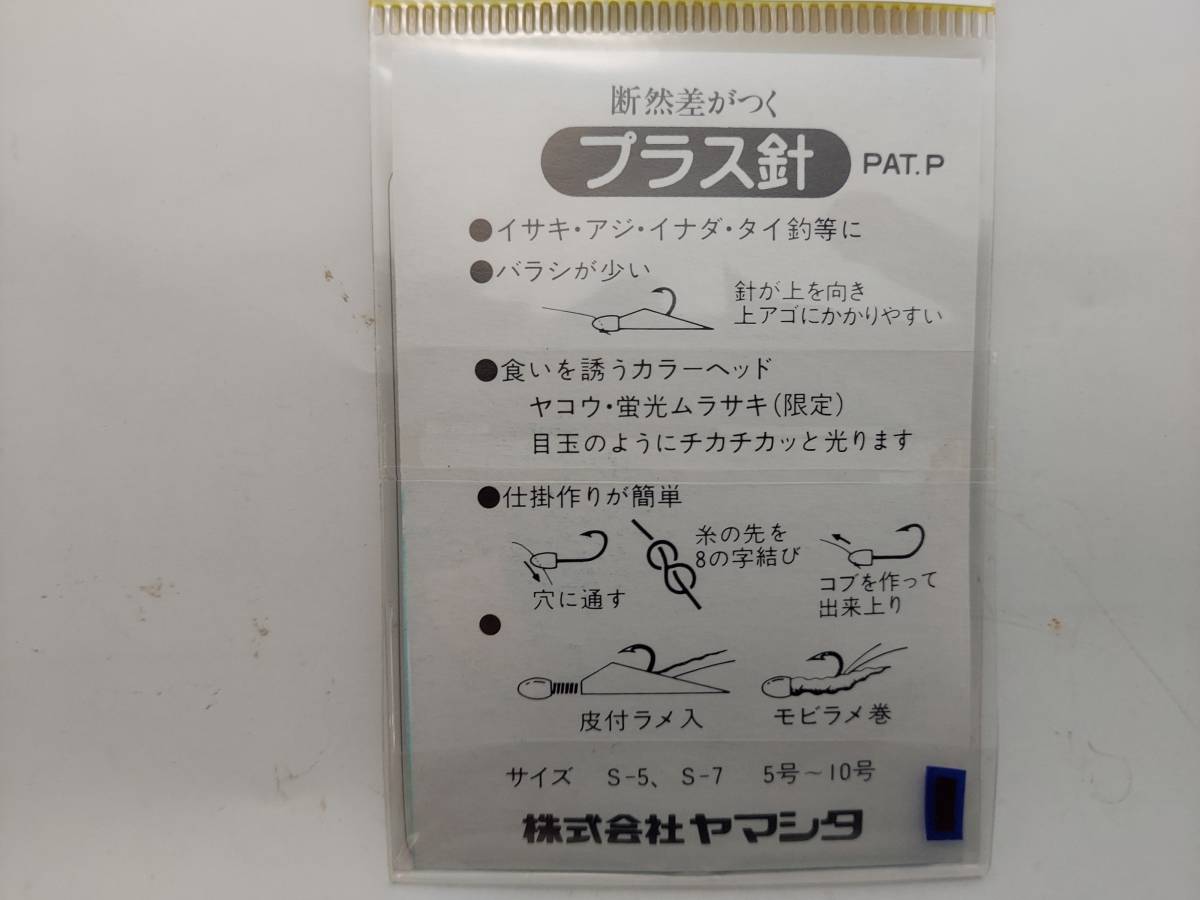 断然差がつく
プラス針 PAT.P
●イサキ・アジ・イナダ・タイ釣等に
●バラシが少い
針が上を向き
上アゴにかかりやすい
●食いを誘うカラーヘッド
ヤコウ・蛍光ムラサキ(限定)
目玉のようにチカチカッと光ります
●仕掛作りが簡単
穴に通す
糸の先を
8の字結び
コブを作って
出来上り
●
皮付ラメ入
モビラメ巻
サイズ S-5、S-7 5号〜10号
株式会社ヤマシタ